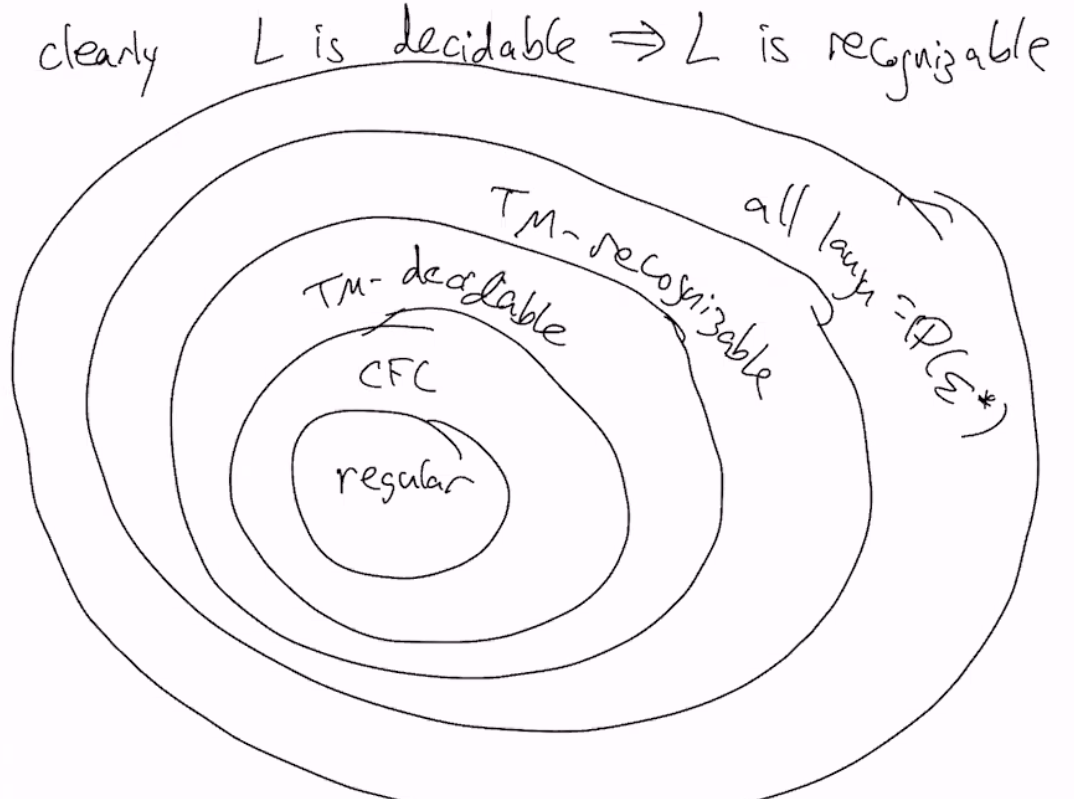 clearly L is decidable ⇒ L is recognizable
all langu = P(Σ*)
TM-recognizable
TM-decidable
CFL
regular